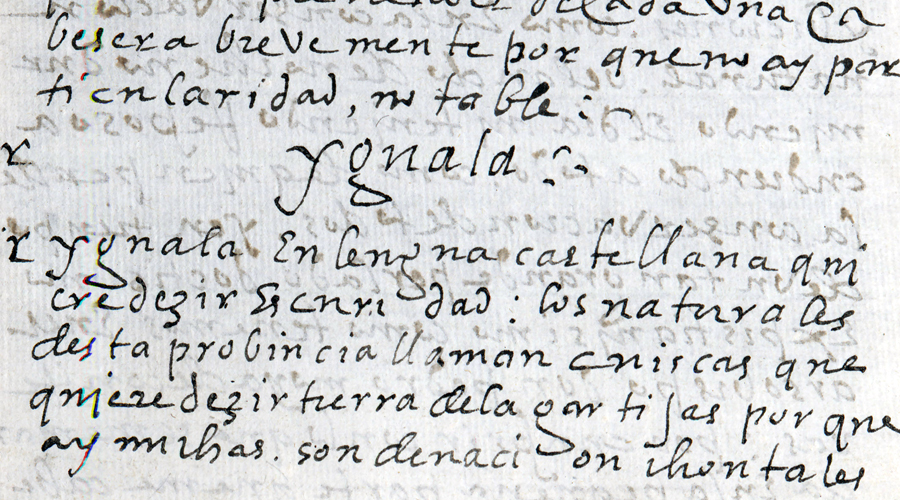 de cada una ca
besera brevemente por que no ay par
ticularidad, notable:
r yguala
r yguala En lengua castellana qui
ere dezir Escuri dad: los naturales
desta probincia llaman cuiscas que
quiere dezir tierra de lagartijas por que
ay muchas. son de naci on chontales